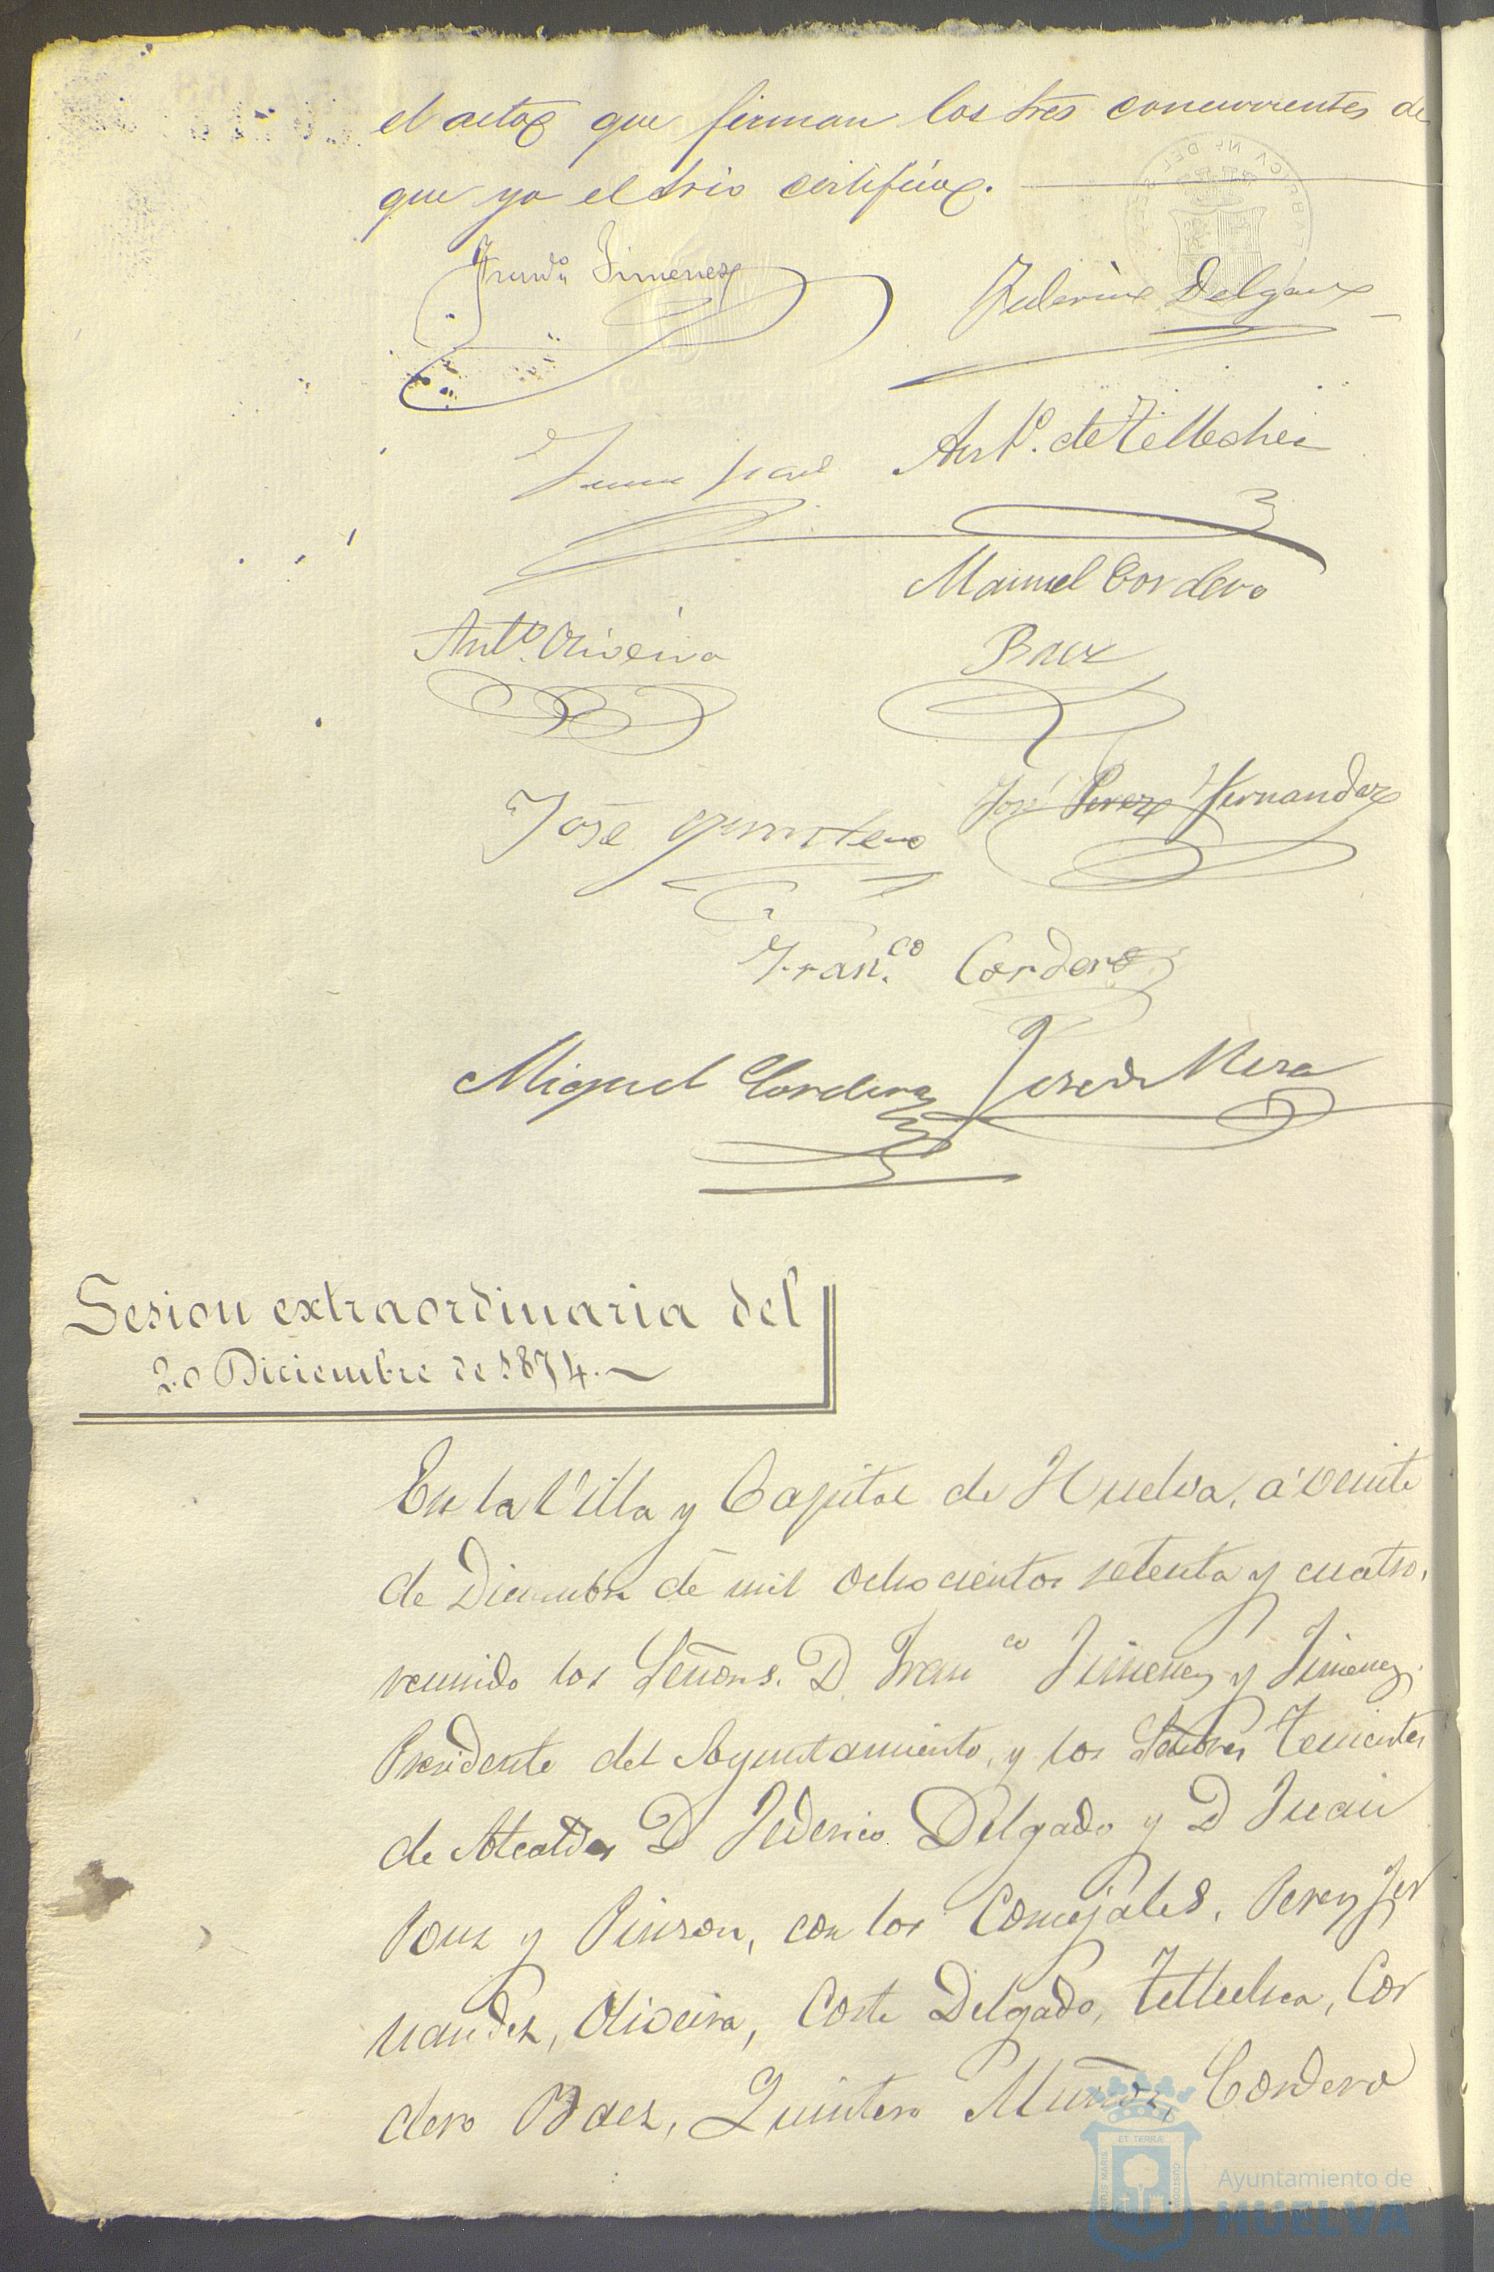 el acto que firman los Sres concurrentes de
que yo el Srio certifico.
Frando Jimenez
Federico Delgado
Antº. de Tellechea
Manuel Cordero
Antº. Oliveira
Baez
José Quintero
José Perez Fernandez
Fran.co Cordero
Miguel Cordero
José de Mesa
Sesion extraordinaria del
20 Diciembre de 1874.
En la Villa y Capital de Huelva, á veinte
de Diciembre de mil ochocientos setenta y cuatro,
reunido los Señores. D. Franco Jimenez y Jimenez,
Presidente del Ayuntamiento, y los Señores Tenientes
de Alcaldes D Federico Delgado y D Juan
y Pinzon, con los Concejales, Perez Fer
nandez, Oliveira, Corte Delgado, Tellechea, Cor
dero Baez, Quintero Muñoz, Cordero
Ayuntamiento de
HUELVA